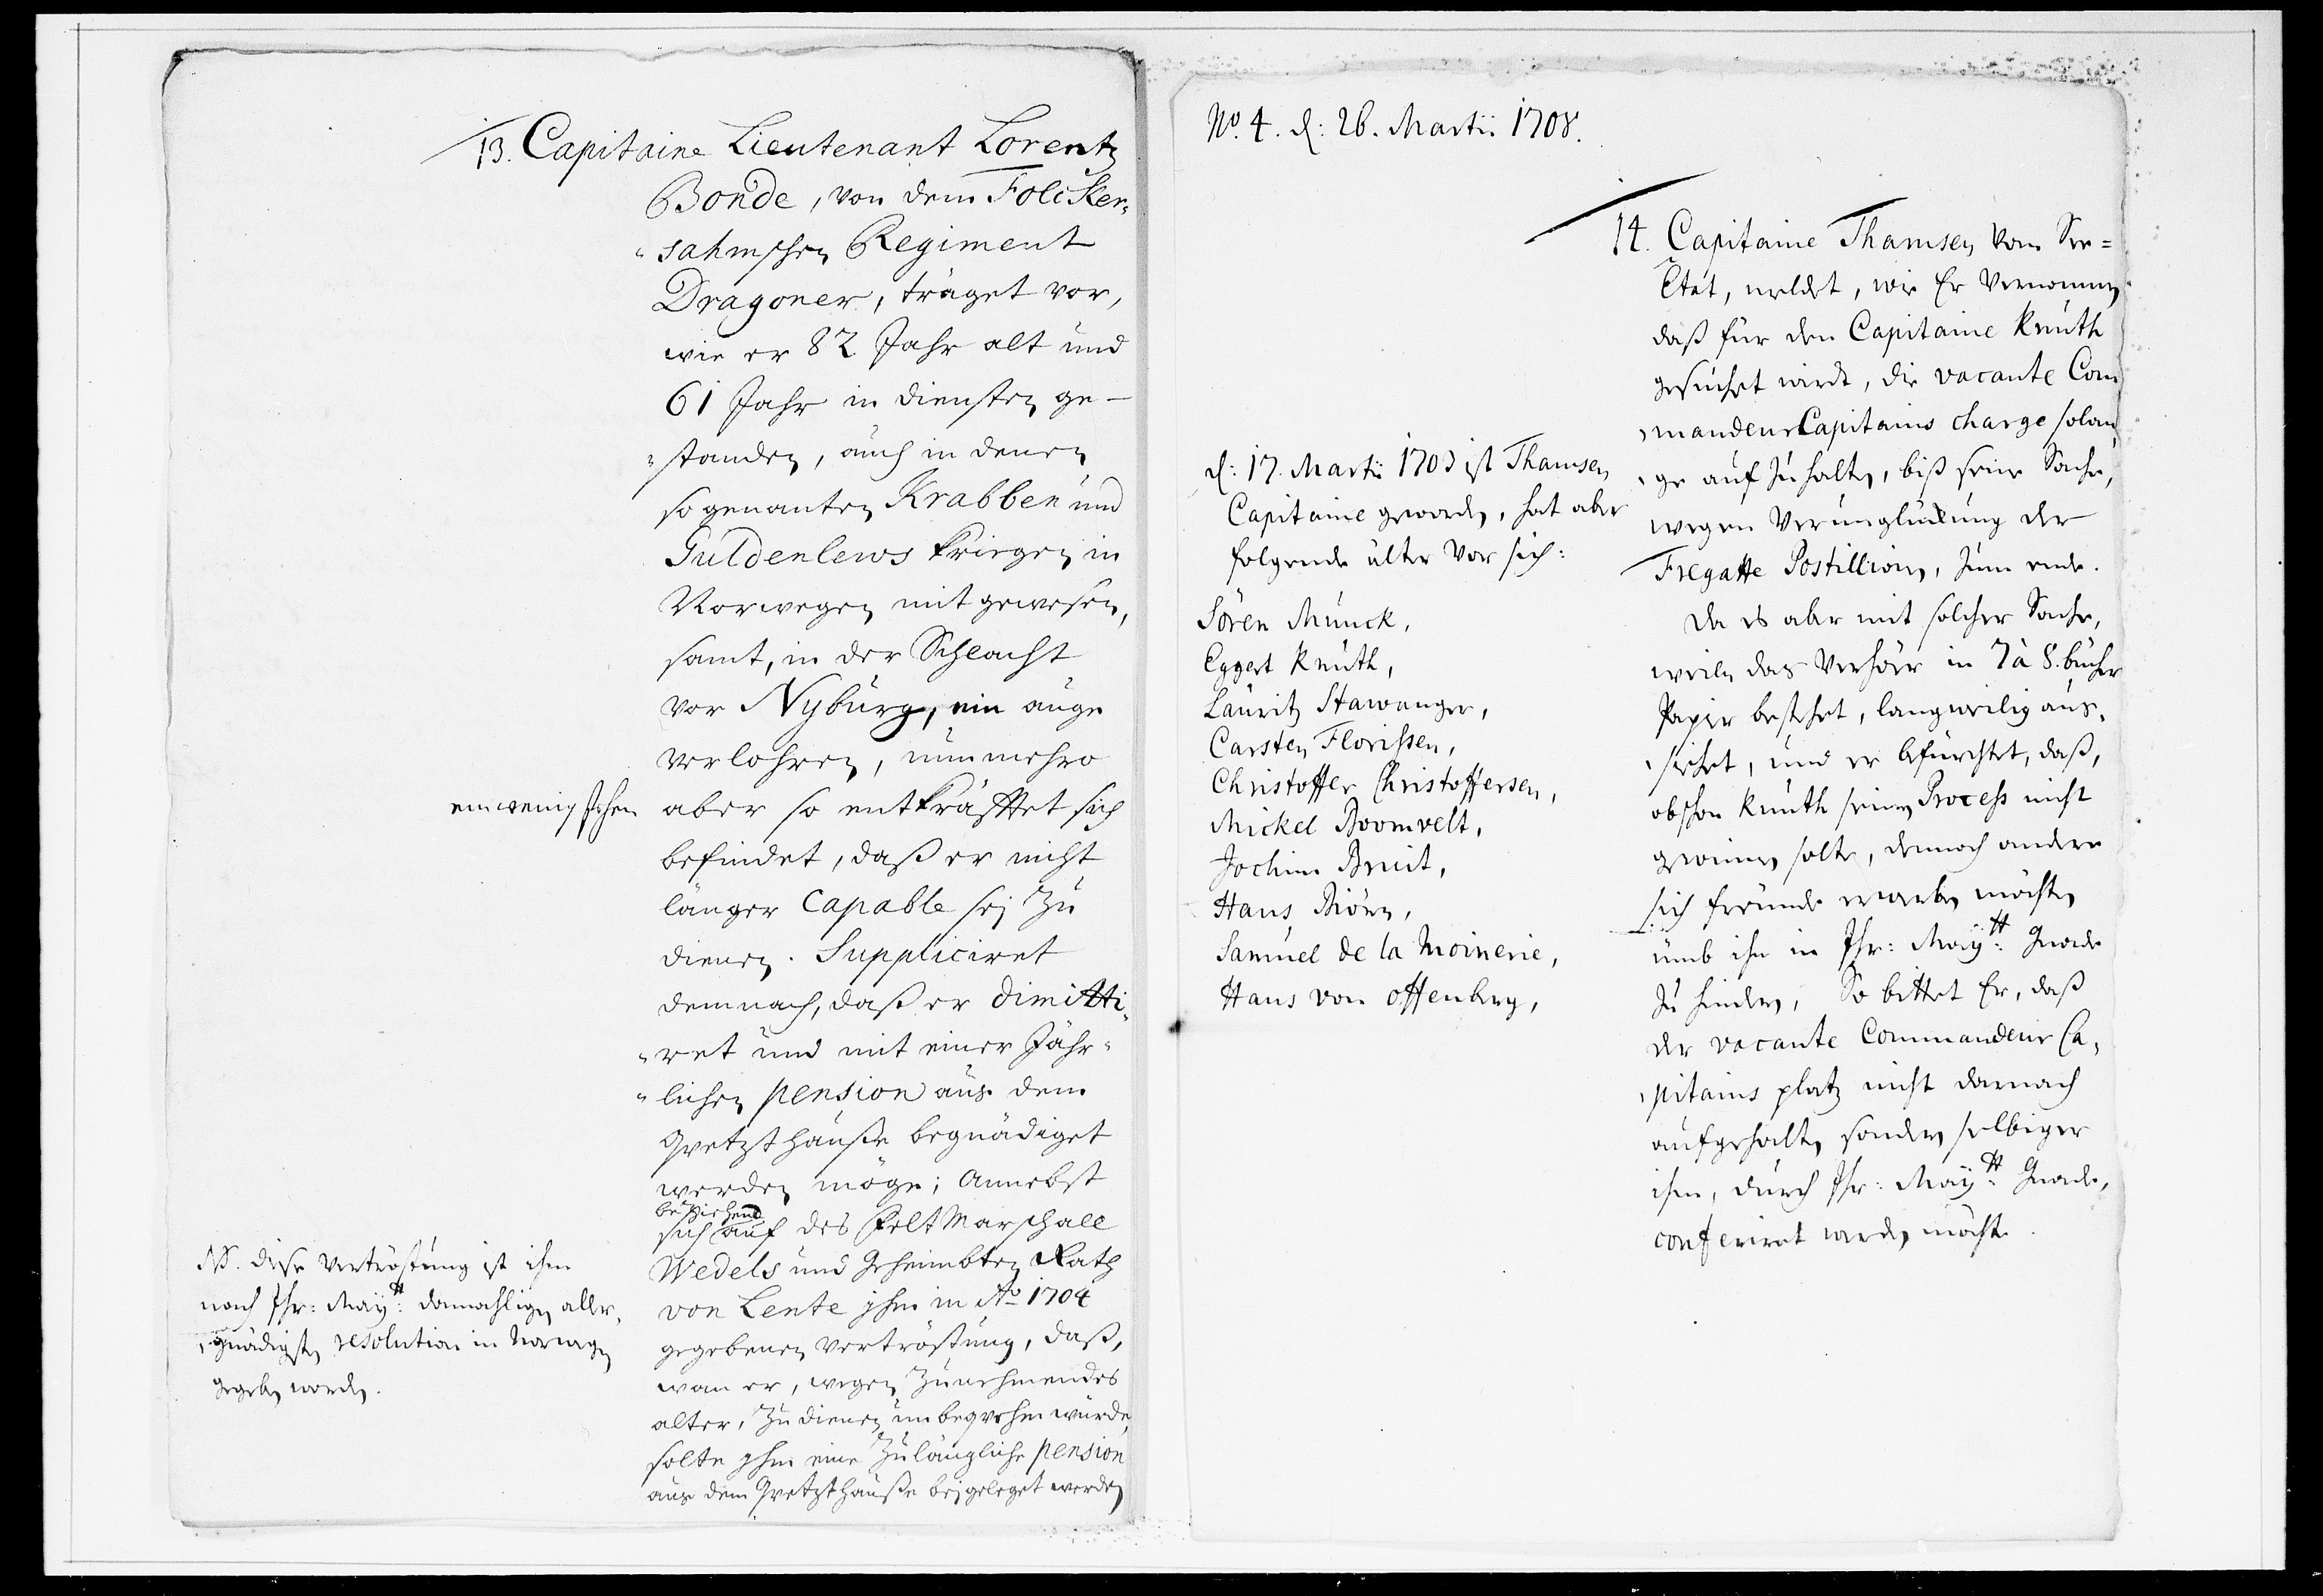 13. Capitaine Lieutenant Lorentz
Bonde, von dem Folcker-
sahmschen Regiment
Dragoner, träget vor,
wie er 82 Jahr alt und
61 Jahr in diensten ge-
standen, auch in denen
so genanten Krabben und
Guldenlews kriegen in
Norwegen mit gewesen,
samt, in der Schlacht
vor Nyburg, ein auge
verlohren, nunmehro
ein wenig sehen
aber so entkräfftet sich
befindet, daß er nicht
länger Capable sej zu
dienen. Suppliciret
demnach, daß er dimitti-
ret und mit einer Jähr-
lichen pension aus dem
Qvetzthauße begnädiget
werden möge; Annebst
beziehend
sich auf des Felt Marschall
Wedels und Geheimbten Rath
von Lente jhm in Ao 1704
gegebenen vertröstung, daß,
wan er, wegen zunehmendes
alter, zu dienen unbeqvehm würde,
solte jhm eine zulängliche pension
aus dem Qvetzthauße beygeleget werden
NB. diese vertröstung ist ihm
nach Jhr: Maytt: damahligen aller-
gnädigsten resolution in Norwegen
gegeben worden.
No. 4. d: 26. Martii 1708.
14. Capitaine Thamsen vom See=
Etat, meldet, wie Er vernommen
daß für den Capitaine Knuth
gesuchet wird, die vacante Com
mandeur Capitains charge solan-
ge auf zu halten, biß seine Sache,
wegen Verunglückung der
Fregatte Postillion, zum ende.
Da es aber mit solcher Sache,
weiln das Verhör in 7 à 8. bücher
Papier bestehet, langweilig aus-
siehet, und er befürchtet, daß,
obschon Knuth seinen Process nicht
gewinnen solte, dennoch andere
sich freunde erwerben möchten
umb ihn in Jhr: Maytt: Gnade
zu hindern, So bittet Er, daß
der vacante Commandeur Ca-
pitains platz nicht darnach
aufgehalten, sondern selbiger
ihm, durch Jhr: Maytt: Gnade,
conferiret werden möchte.
d: 17. Martii 1703 ist Thamsen
Capitaine geworden, hat aber
folgende älter vor sich:
Sören Munck,
Eggert Knuth,
Lauritz Stawanger,
Carsten Florissen,
Christoffer Christoffersen,
Mickel Boomvelt,
Jochim Bruit,
Hans Biörn,
Samuel de la Moinerie,
Hans von Offenberg,